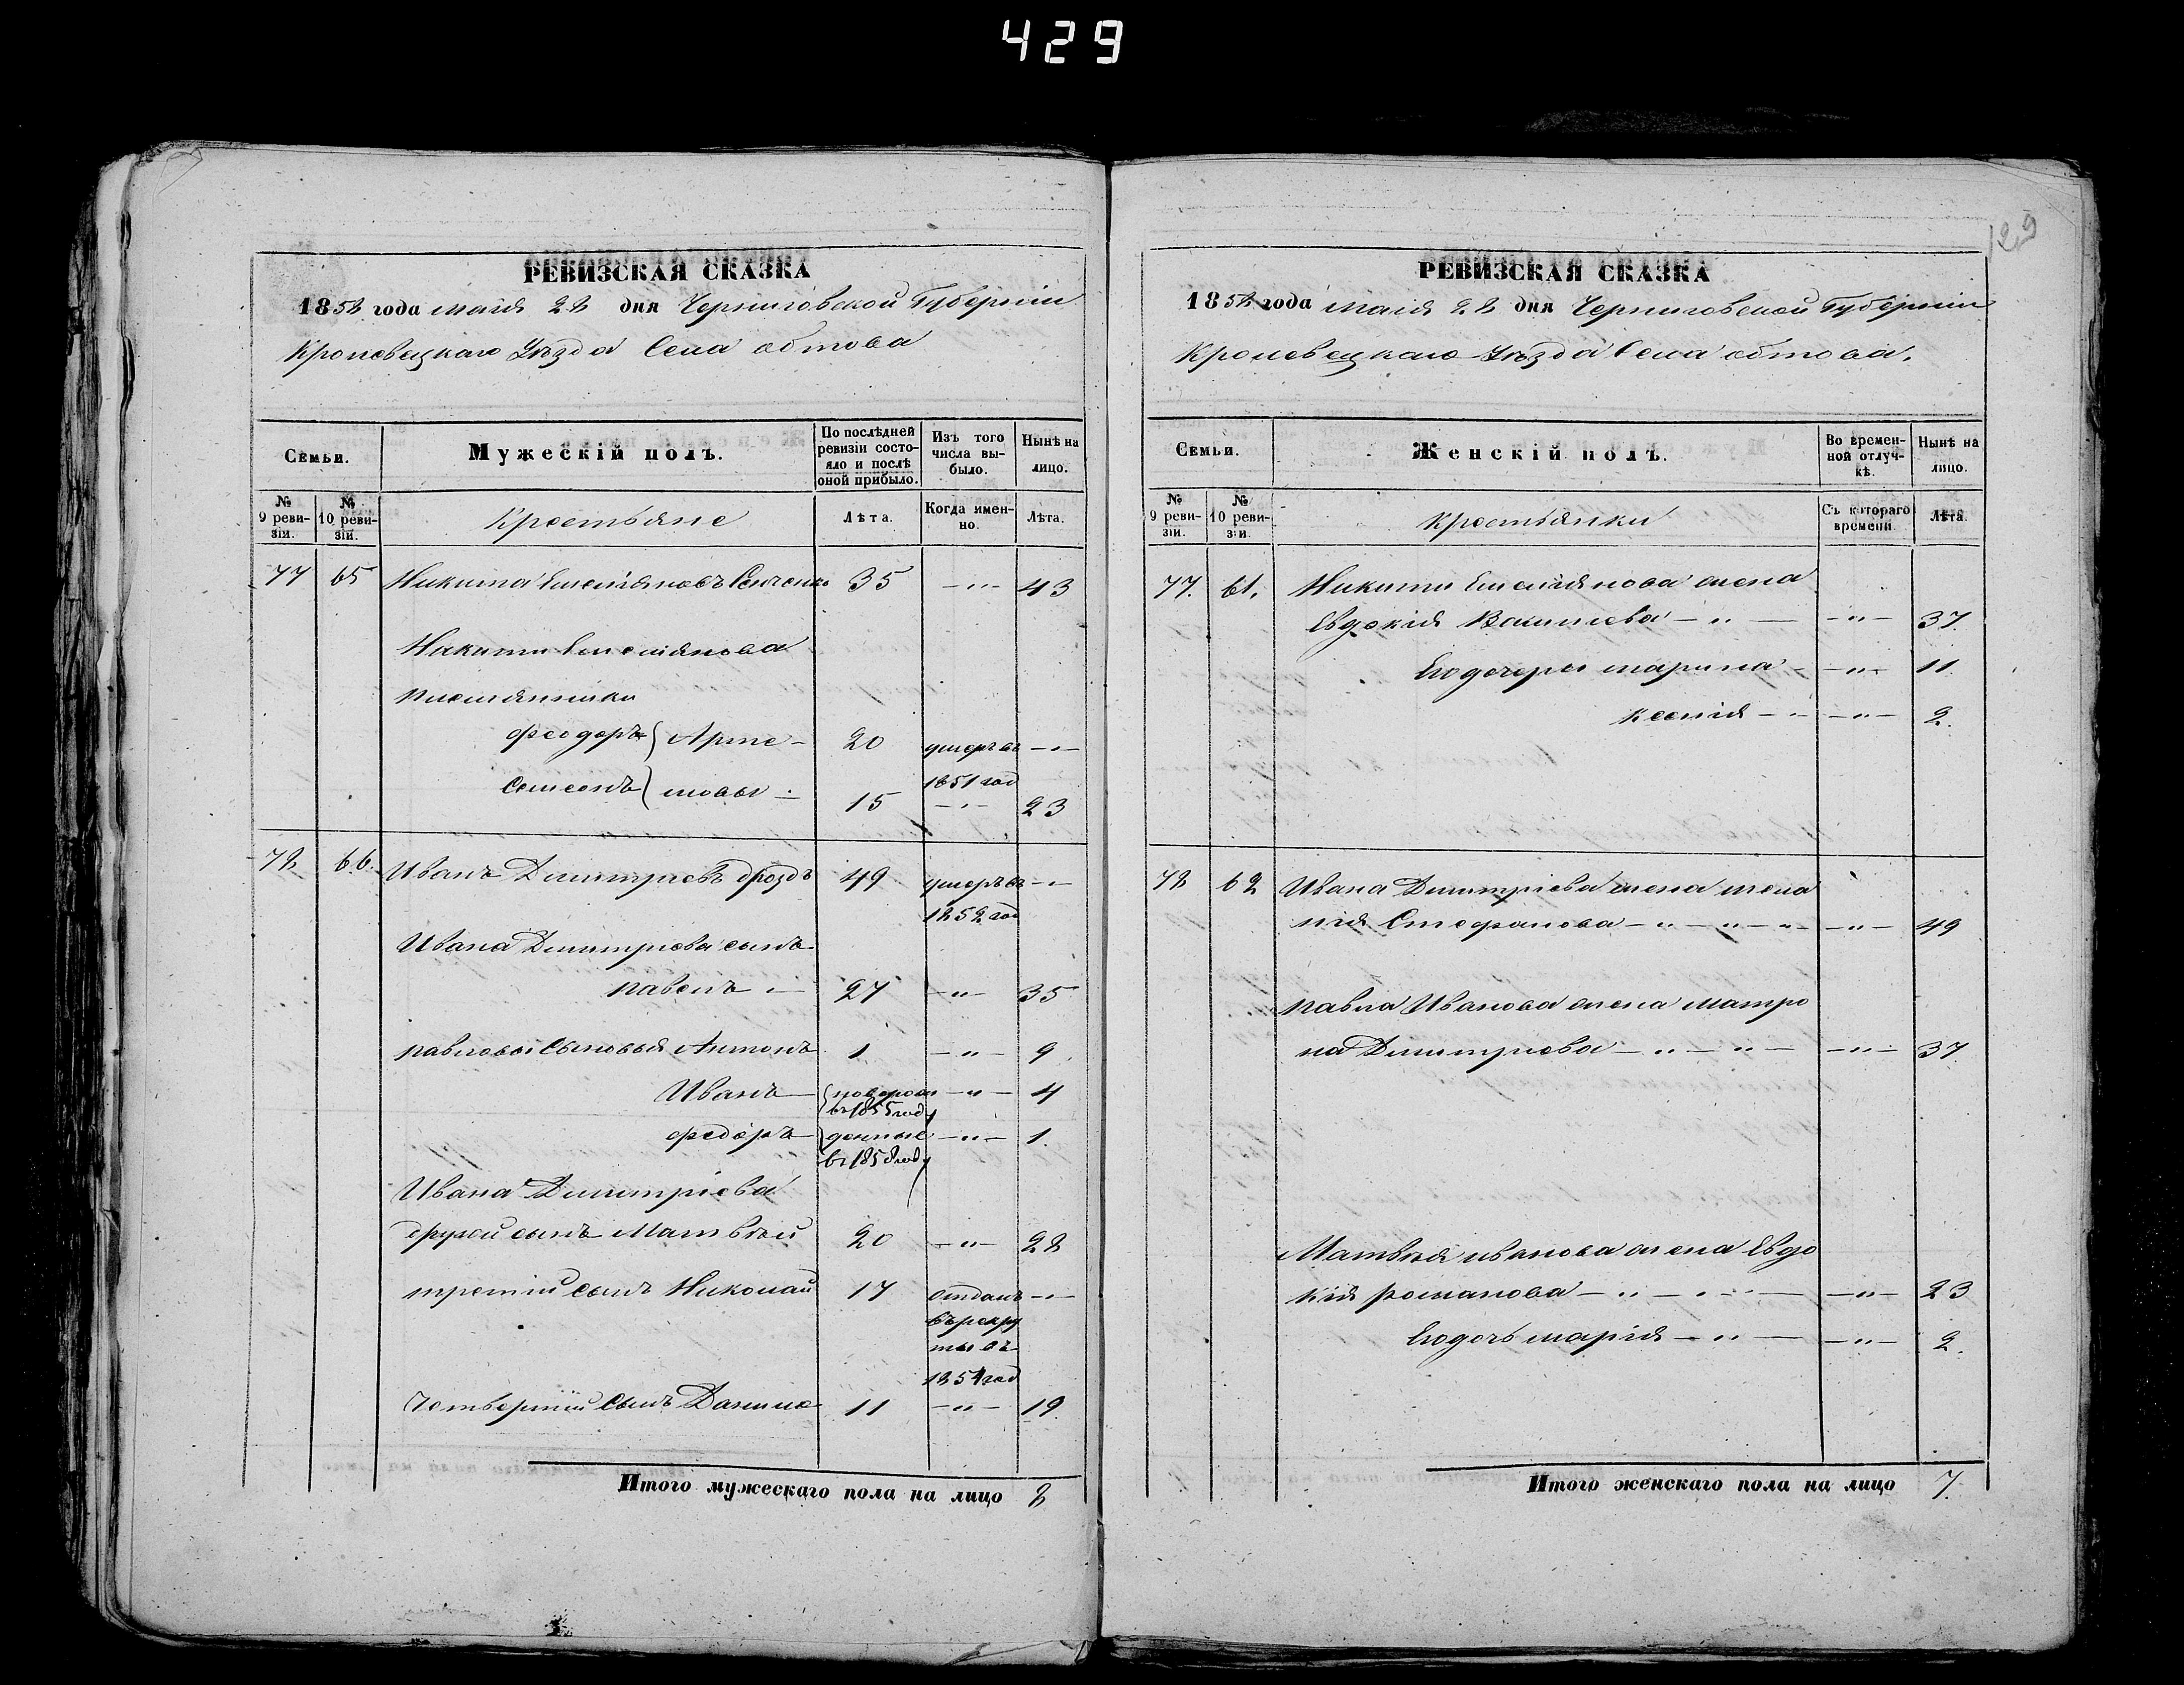 429
129
РЕВИЗСКАЯ СКАЗКА
1858 года маія 28 дня Черниговской Губерніи
Кролевецкаго Уѣзда Села обтова
Семьи.
Мужескій полъ.
По послѣдней ревизіи состояло и послѣ оной прибыло.
Изъ того числа выбыло.
Нынѣ на лицо.
№ 9 ревизіи.
№ 10 ревизіи.
Крестьяне
Лѣта.
Когда именно.
Лѣта.
77 65 Никита Емельяновъ 35 — " — 43
Никиты Емельянова
племянники
Феодоръ } Арте- 20 умеръ въ — " —
1851 год
Семенъ } мовы 15 — " — 23
78 66. Иванъ Димитріевъ Дроздъ 49 умеръ въ — " —
1852 год
Ивана Димитріева сынъ
павелъ — 27 — " — 35
павловы Сыновья Антонъ 1 — " — 9.
Иванъ — { новорож — " — 4
въ 1855 году
федоръ — { денные — " — 1.
въ 1858 году
Ивана Димитріева
другой сынъ Матвѣй 20 — " — 28
третій сынъ Николай 17 отданъ — " —
въ рекру
ты въ
1854 год
Четвертый сынъ Данило 11 — " — 19
Итого мужескаго пола на лицо 8
РЕВИЗСКАЯ СКАЗКА
1858 года маія 28 дня Черниговской Губерніи
Кролевецкаго Уѣзда Села обтова.
Семьи.
Женскій полъ.
Во временной отлучкѣ.
Нынѣ на лицо.
№ 9 ревизіи.
№ 10 ревизіи.
крестьянки
Съ котораго времени
Лѣта.
77. 61. Никиты Емельянова жена
Евдокія Василиева — " — — " — 37.
Его дочери марина — — " — 11.
ксенія — " — " — 2.
78 62 Ивана Димитріева жена мела
нія Стефанова — " — " — " — — " — 49
павла Иванова жена матро
на Димитріева — " — " — — " — 37.
Матвѣя иванова жена Евдо
кія романова — " — " — — " — 23
Его дочь марія — " — — " — 2.
Итого женскаго пола на лицо 7.